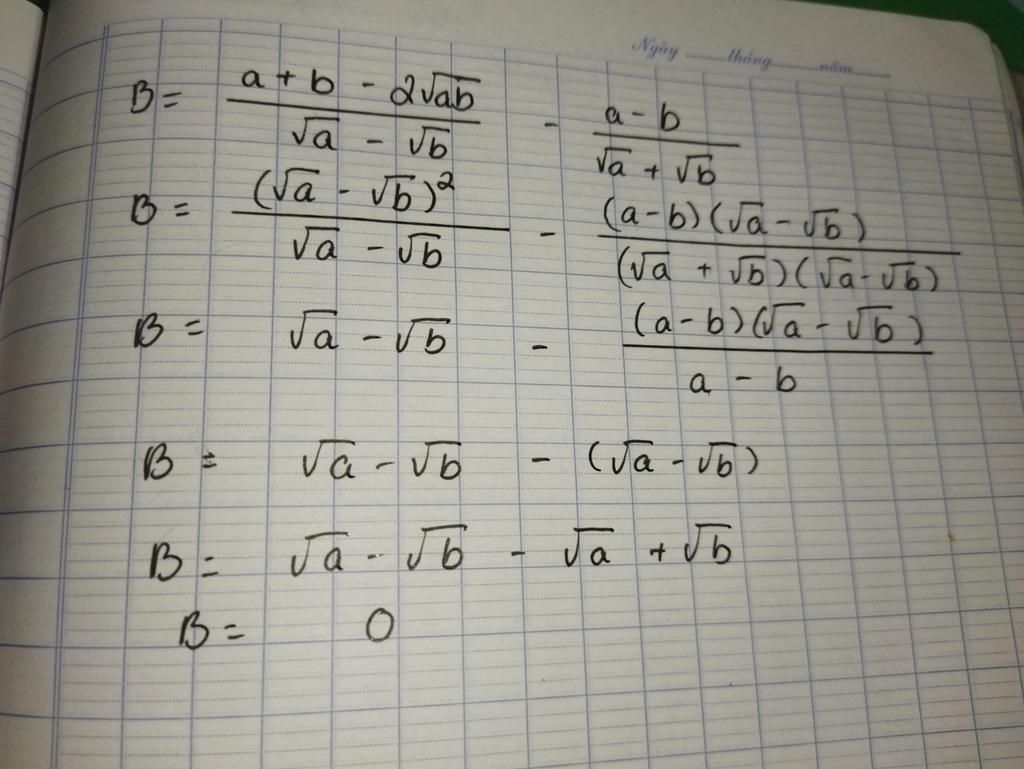 Ngày ........tháng............năm.........
B = (a + b - 2√ab)/(√a - √b) - (a - b)/(√a + √b)
B = (√a - √b)²/(√a - √b) - (a - b)(√a - √b)/(√a + √b)(√a - √b)
B = √a - √b - (a - b)(√a - √b)/(a - b)
B = √a - √b - (√a - √b)
B = √a - √b - √a + √b
B = 0